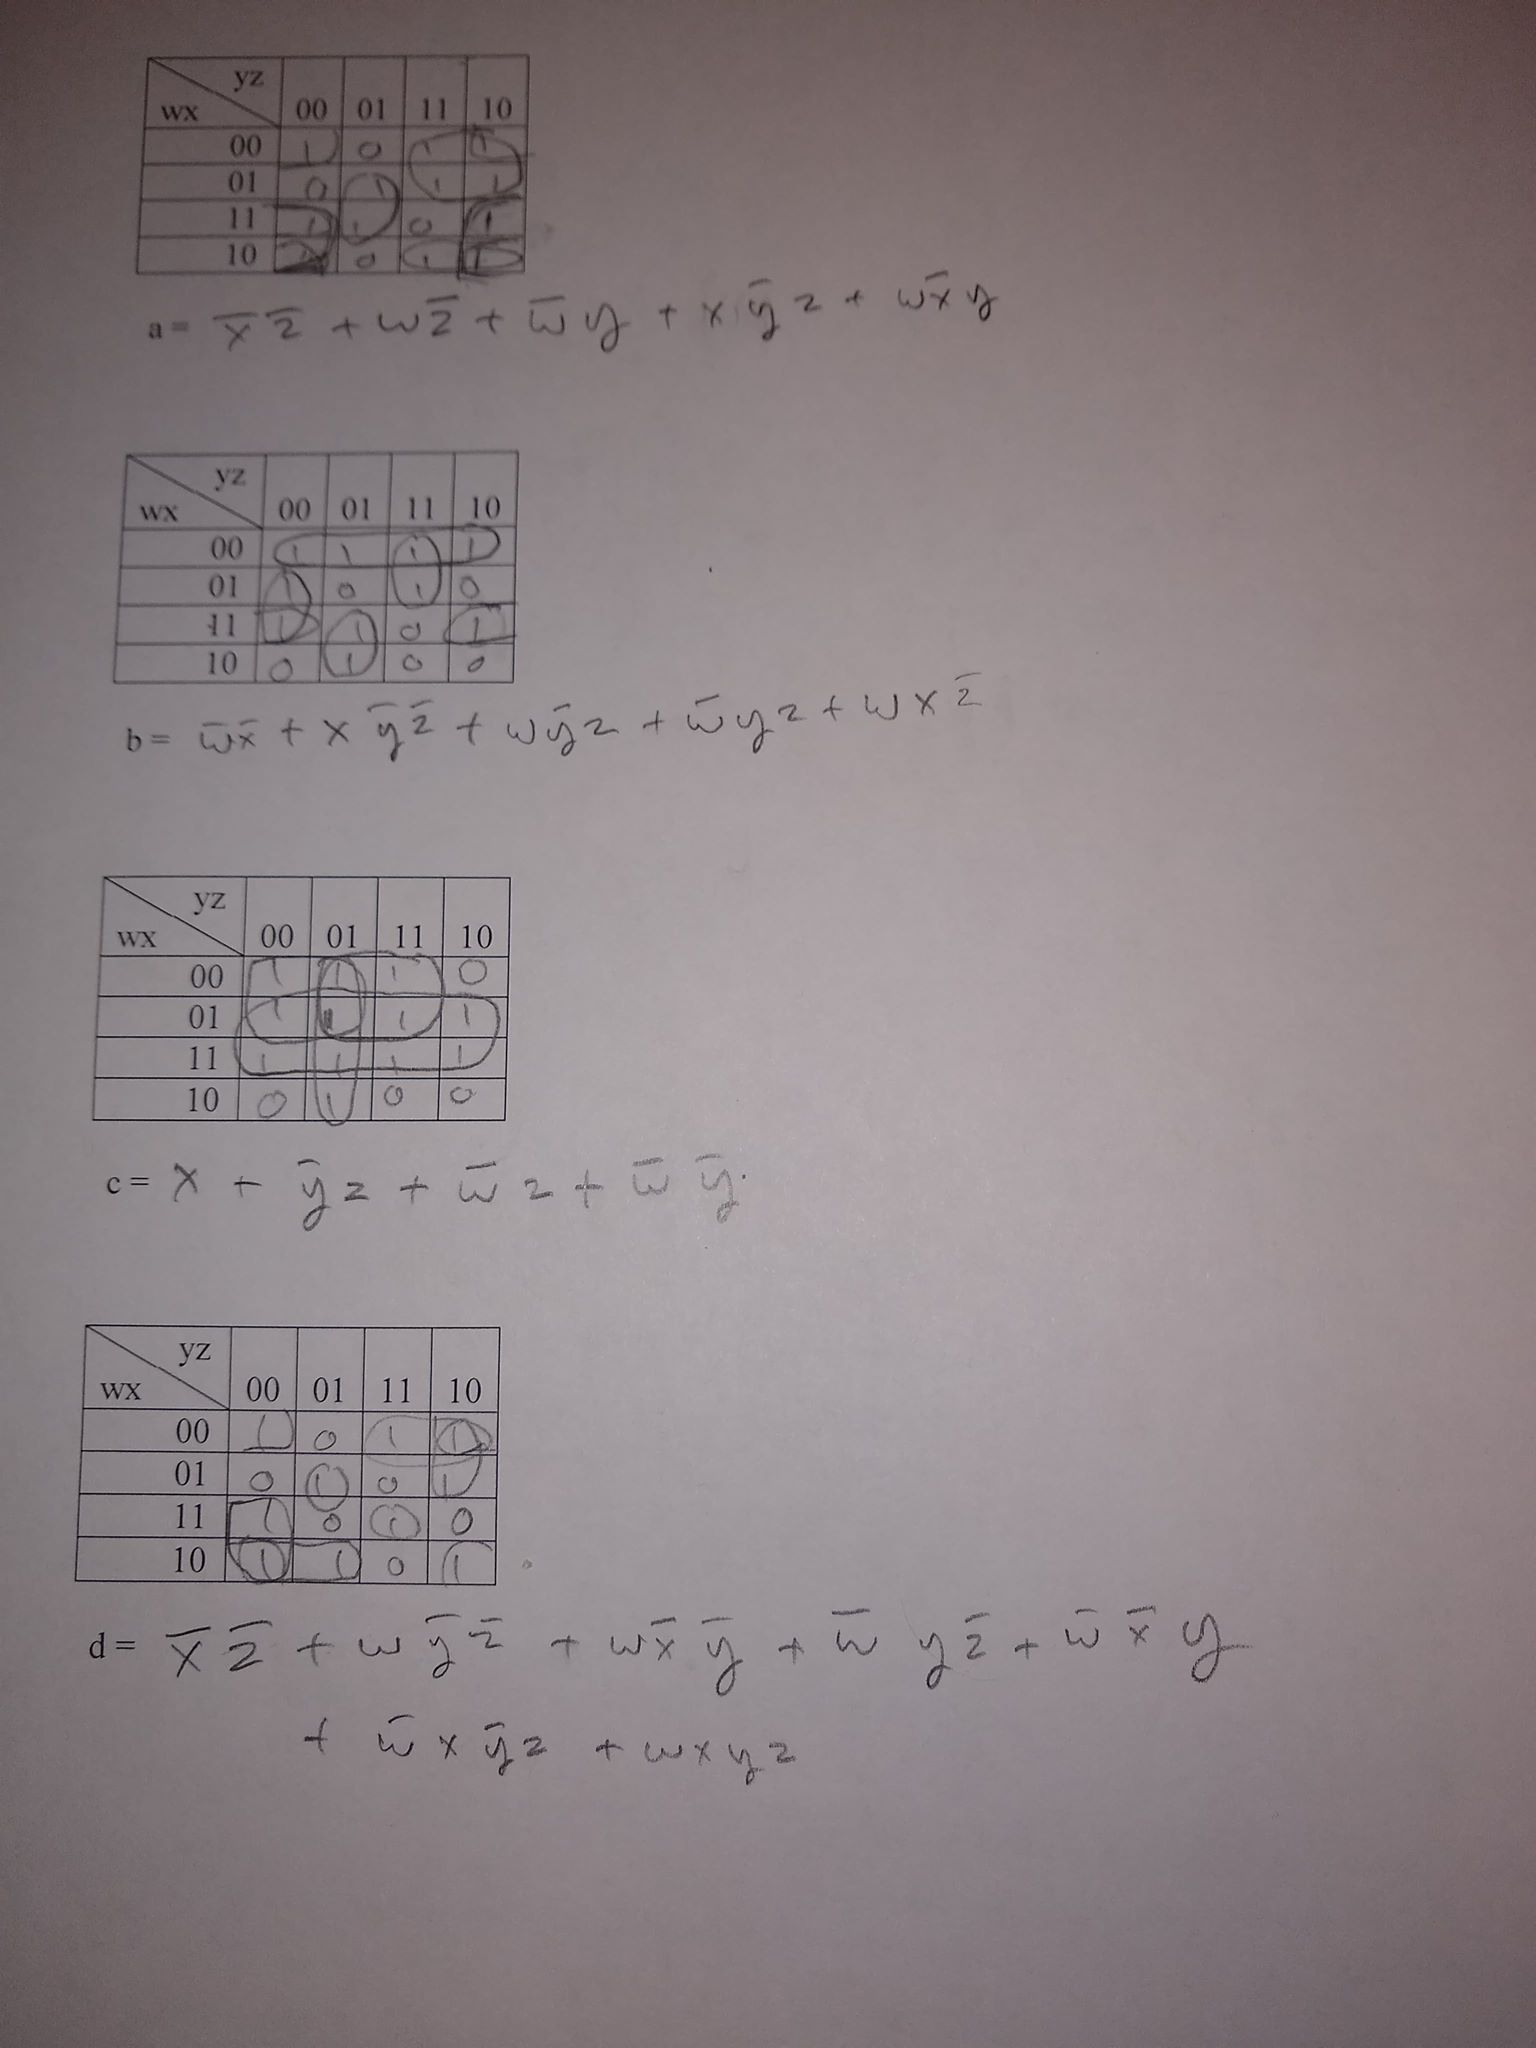 yz
wx 00 01 11 10
00 1 0 1 1
01 0 1 1 1
11 1 1 0 1
10 1 0 1 1
a = x̅ z̅ + w z̅ + w̅ y + x y̅ z + w x̅ y
yz
wx 00 01 11 10
00 1 1 1 1
01 1 0 1 0
11 1 1 0 1
10 0 1 0 0
b = w̅ x̅ + x y̅ z̅ + w y̅ z + w̅ y z + w x z̅
yz
wx 00 01 11 10
00 1 1 1 0
01 1 1 1 1
11 1 1 1 1
10 0 1 0 0
c = x + y̅ z + w̅ z + w̅ y̅.
yz
wx 00 01 11 10
00 1 0 1 1
01 0 1 0 1
11 1 0 1 0
10 1 1 0 1
d = x̅ z̅ + w y̅ z̅ + w x̅ y̅ + w̅ y z̅ + w̅ x̅ y
+ w̅ x y̅ z + w x y z